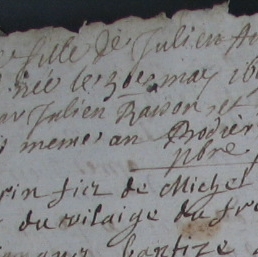 fille de Julien
née le 30e may 16
Julien Raison et
memes an Rodier
pbre
fin filz de Michel
du vilaige du
baptize